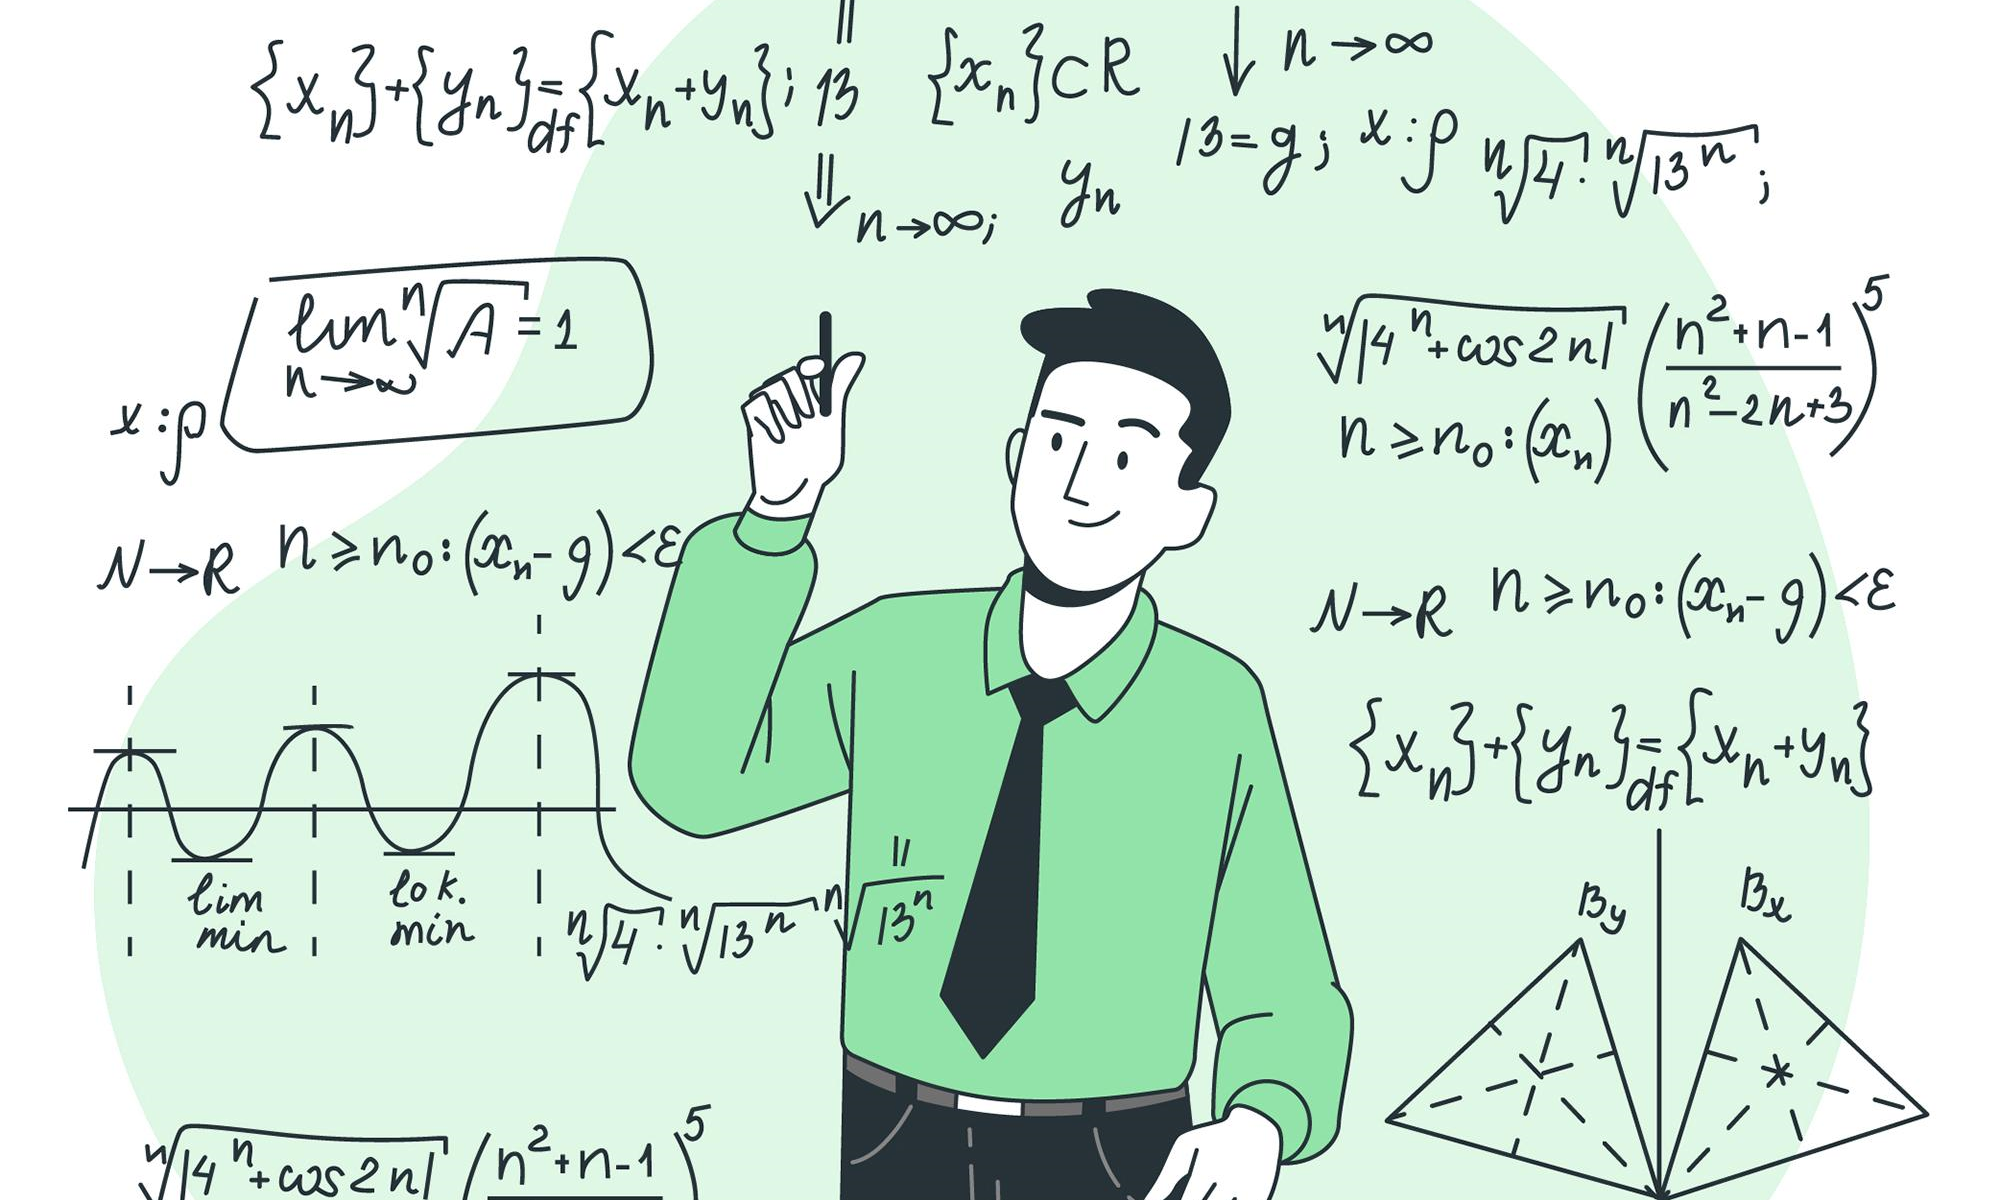 {xₙ}+{yₙ}=df{xₙ+yₙ}; 13
{xₙ}⊂R
n→∞
n→∞;
yₙ
13=g; x:ρ ⁿ√4! ⁿ√13ⁿ;
lim ⁿ√A=1
n→∞
x:ρ
ⁿ√|4ⁿ+cos2n| ((n²+n-1)/(n²-2n+3))⁵
n≥n₀:(xₙ)
N→R n≥n₀:(xₙ-g)<ε
N→R n≥n₀:(xₙ-g)<ε
{xₙ}+{yₙ}=df{xₙ+yₙ}
lim
min
lok.
min
ⁿ√4! ⁿ√13ⁿ ⁿ√13ⁿ
By
Bx
ⁿ√|4ⁿ+cos2n| (n²+n-1)⁵